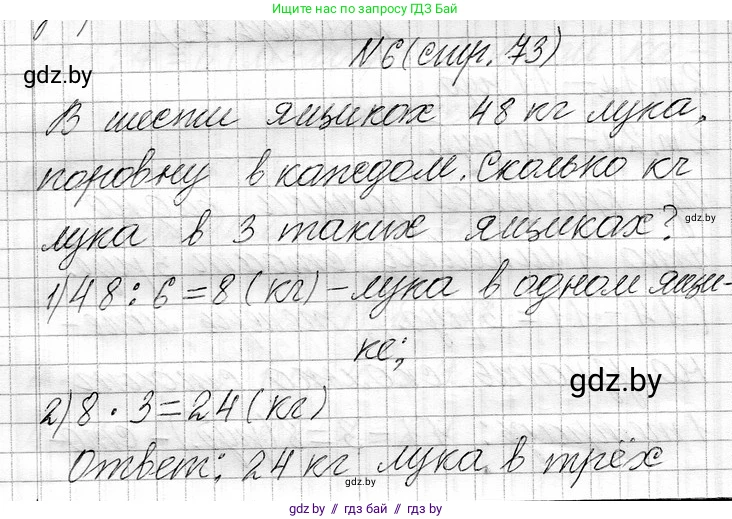 Ищите нас по запросу ГДЗ Бай
N6(стр. 73)
gdz.by
В шести ящиках 48 кг лука,
поровну в каждом. Сколько кг
gdz.by
лука в 3 таких ящиках?
1)48:6=8(кг)-лука в одном ящи-
ке;
gdz.by
2)8·3=24(кг)
Ответ: 24 кг лука в трёх
gdz.by
gdz.by // гдз бай // гдз.бай